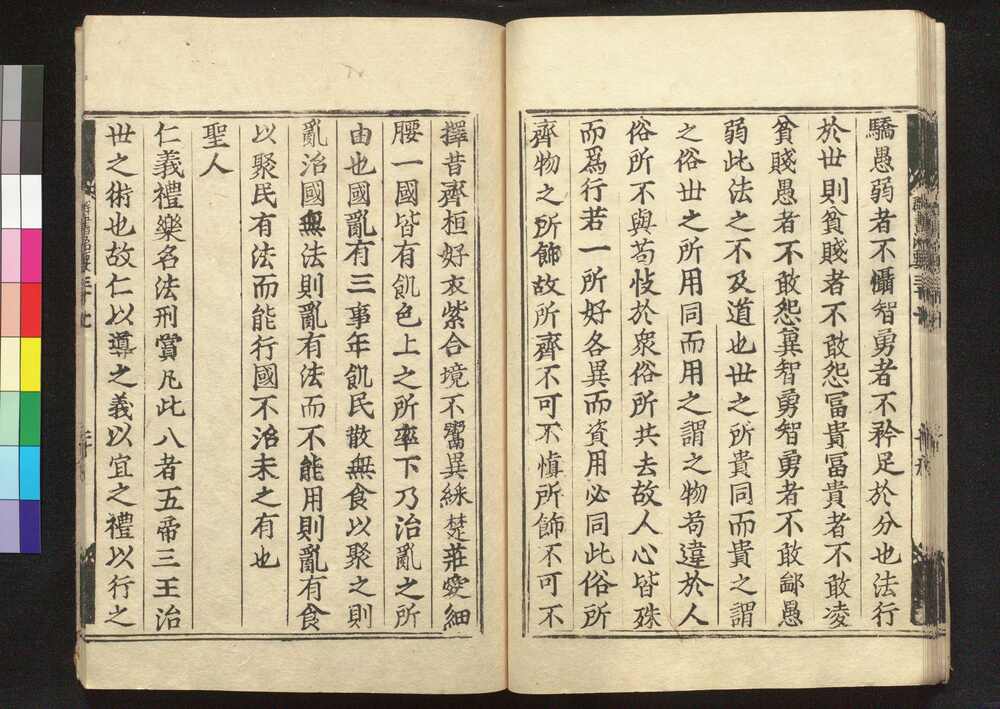 驕愚弱者不懾智勇者不矜足於分也法行
於世則貧賤者不敢怨冨貴冨貴者不敢凌
貧賤愚者不敢怨冀智勇智勇者不敢鄙愚
弱此法之不及道也世之所貴同而貴之謂
之俗世之所用同而用之謂之物苟違於人
俗所不與苟忮於衆俗所共去故人心皆殊
而爲行若一所好各異而資用必同此俗所
齊物之所飾故所齊不可不愼所飾不可不
擇昔齊桓好衣紫合境不鬻異綵楚莊愛細
腰一國皆有飢色上之所率下乃治亂之所
由也國亂有三事年飢民散無食以聚之則
亂治國無法則亂有法而不能用則亂有食
以聚民有法而能行國不治未之有也
聖人
仁義禮樂名法刑賞凡此八者五帝三王治
世之術也故仁以導之義以宜之禮以行之
群書治要三十七